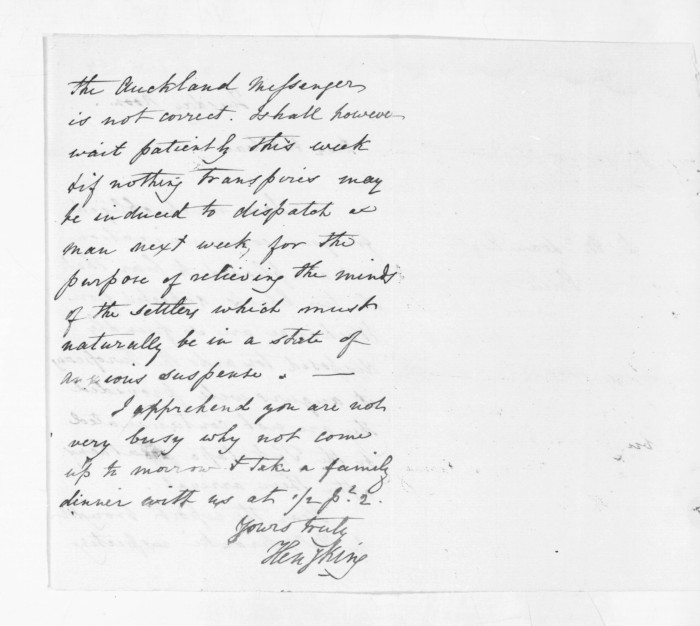 the Auckland Messenger
is not correct. I shall however
wait patiently this week
& if nothing transpires may
be induced to dispatch a
man next week, for the
purpose of relieving the minds
of the settlers which must
naturally be in a state of
anxious suspense. —
I apprehend you are not
very busy why not come
up to morrow & take a family
dinner with us at 1/2 pt 2.
Yours truly
Hen King